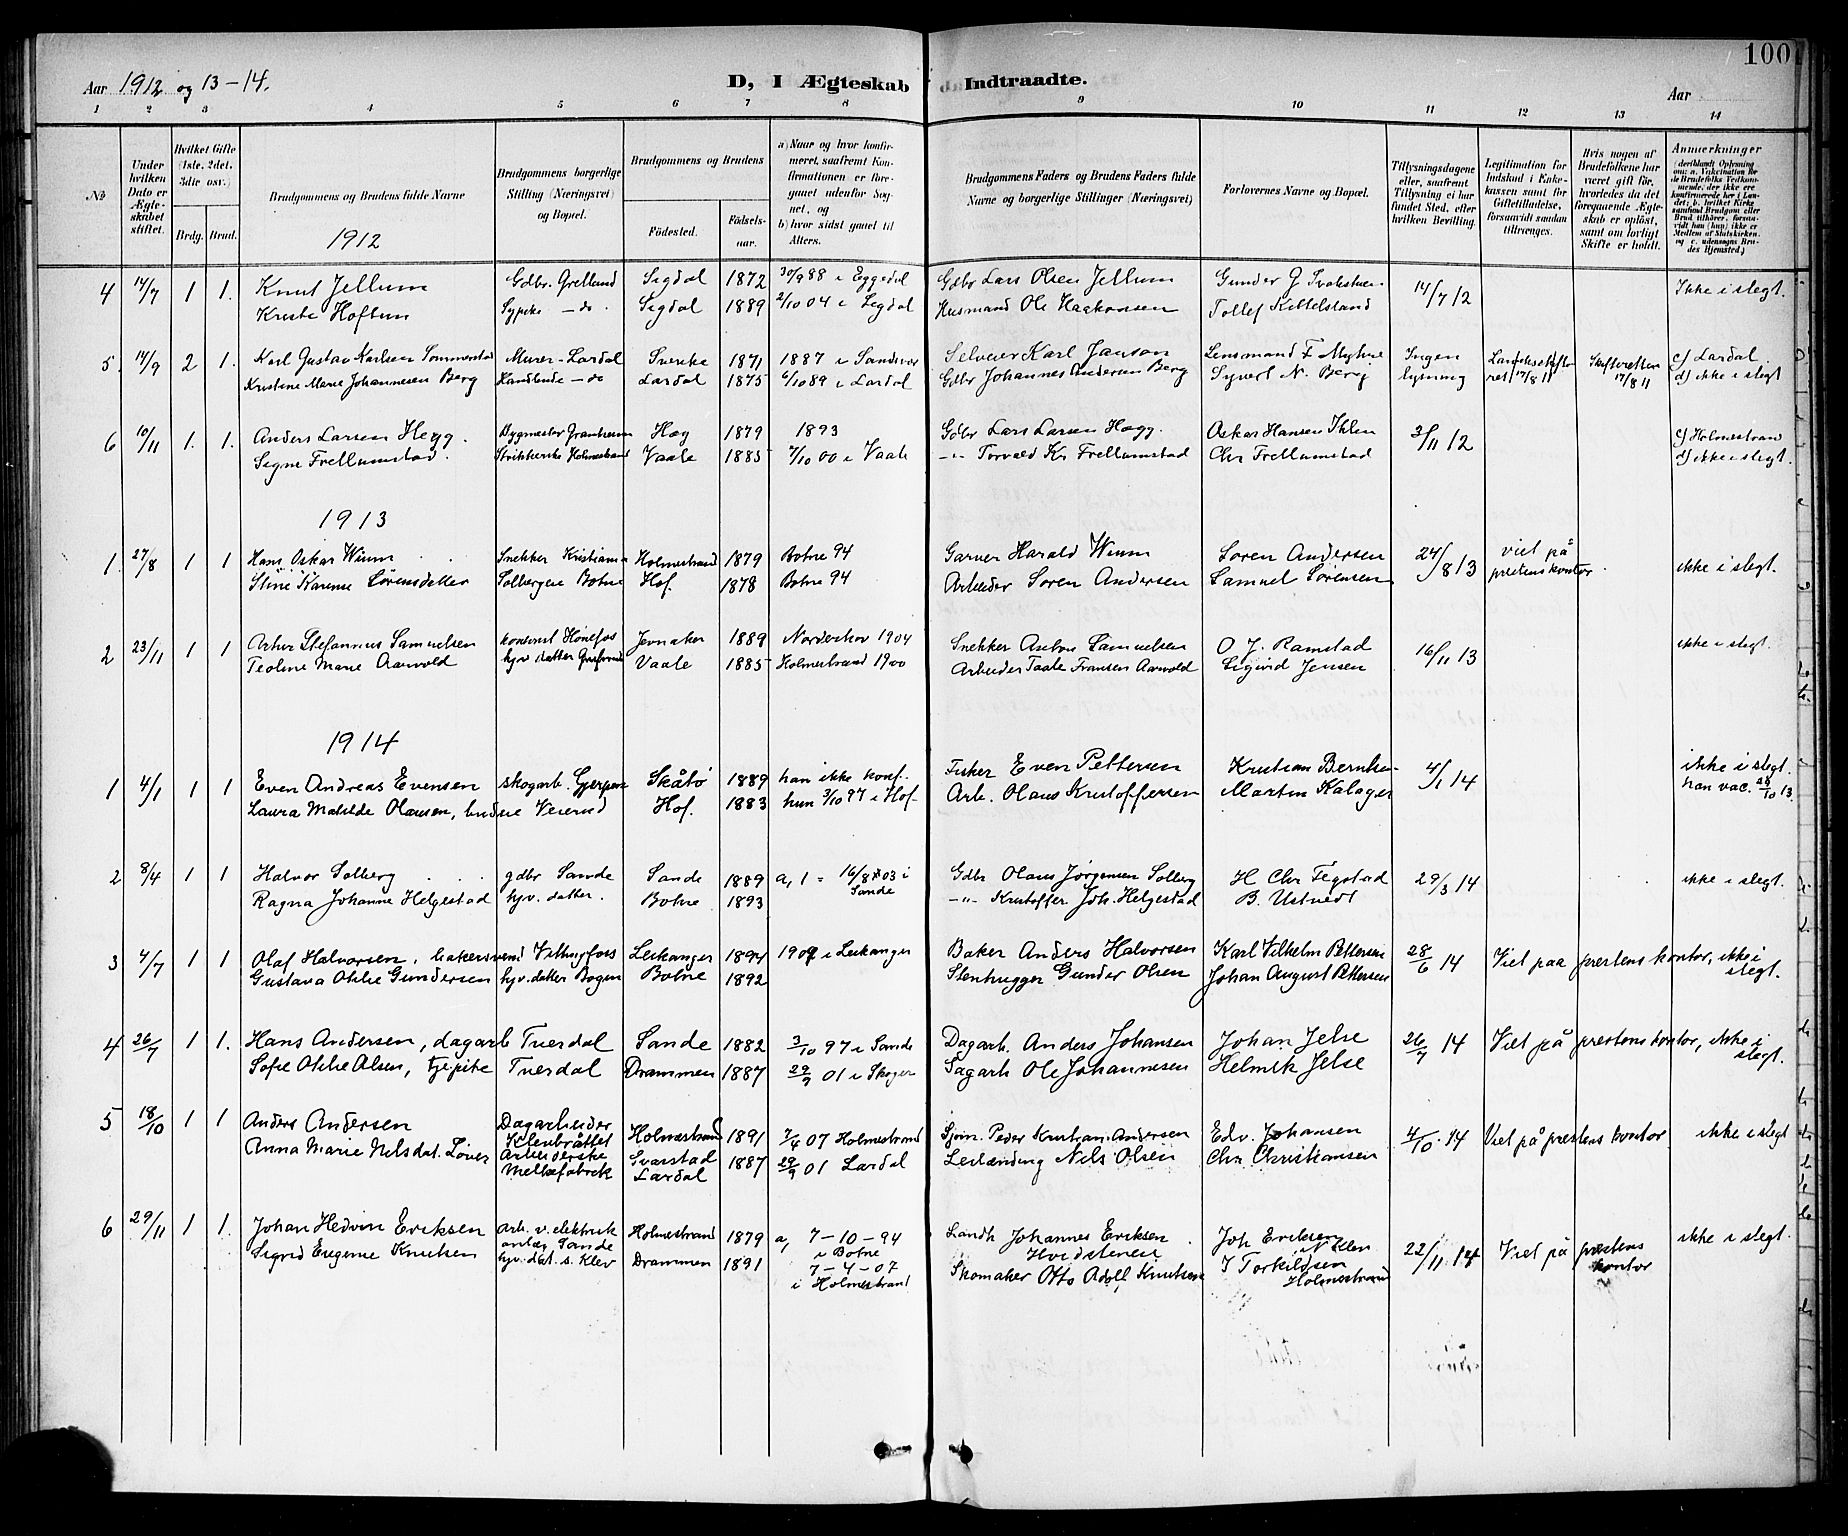 Aar 1912 og 13-14.
D, I Ægteskab Indtraadte.
Aar
100
1 2 3 4 5 6 7 8 9 10 11 12 13 14
No
Under hvilken Dato er Ægteskabet stiftet.
Hvilket Gifte (1ste, 2det, 3die osv.)
Brdg. Brud.
Brudgommens og Brudens fulde Navne
Brudgommens borgerlige Stilling (Næringsvei) og Bopæl.
Brudgommens og Brudens
Fødested. Fødselsaar.
a) Naar og hvor konfirmeret, saafremt Konfirmationen er foregaaet udenfor Sognet, og
b) hvor sidst gaaet til Alters.
Brudgommens Faders og Brudens Faders fulde Navne og borgerlige Stillinger (Næringsvei)
Forlovernes Navne og Bopæl.
Tillysningsdagene eller, saafremt Tillysning ei har fundet Sted, efter hvilken Bevilling.
Legitimation for Indskud i Enkekassen samt for Giftetilladelse, forsaavidt saadan tiltrænges.
Hvis nogen af Brudefolkene har været gift før, hvorledes da det foregaaende Ægteskab er opløst, samt om lovligt Skifte er holdt.
Anmerkninger
1912
4 14/7 1 1. Knut Jellum Gdbr. Grellund Sigdal 1872 30/9 88 i Eggedal Gdbr Lars Olsen Jellum Gunder G 14/7 12 Ikke i slegt.
Kristi Hoftun Sypike - do - Sigdal 1889 2/10 04 i Sigdal Husmand Ole Haakonsen Tollef Kittelsland
5. 14/9 2 1. Karl Gustav Karlsen Sommerstad Murer - Lardal Sverike 1871 1887 i Sandsvær Selveier Karl Janson Lensmand F Myhre Ingen lysning 17/8 11 Skifteretten 17/8 11 c) Lardal.
Kristine Marie Johannesen Berg Handlende - do Lardal 1875 6/10 89 i Lardal Gdbr Johannes Andersen Berg Syvert N. Berg d) ikke i slegt
6 10/11 1. 1. Anders Larsen Hegg. Bygmester Hæg 1879 1893 Gdbr Lars Larsen Hægg. Oskar Hansen Ihlen 3/11 12 c) Holmestrand
Signe Frellumstad. Strikkerske Holmestrand Vaale 1885 7/10 00 i Vaale -"- Torvald Kr Frellumstad Chr Frellumstad d) ikke i slegt.
1913
1. 27/8 1 1 Hans Oskar Wium Snekker Kristiania Holmestrand 1879 Botne 94 Garver Harald Wium Søren Andersen 24/8 13 viet på prestens kontor ikke i slegt.
Stine Karine Sørensdatter Solbergene Botne Hof. 1878 Botne 94 Arbeider Søren Andersen Samuel Sørensen
2 23/11 1 1 Artur Stefannus Samuelsen Hønefos Jevnaker 1889 Norderhov 1904 Snekker Anton Samuelsen O. J. Ramstad 16/11 13 ikke i slegt.
Teoline Marie Aarvold hjv. datter Vaale 1885 Holmestrand 1900 Arbeider Taale Fransen Aarvold Sigurd Jensen
1914
1 4/1 1 1 Even Andreas Evensen skogarb. Gjerpen Skåtø 1889 han ikke konf. Fisker Even Pettersen Kristian Berntsen 4/1 14 ikke i slegt.
Laura Matilde Olausen, budeie Veierud Hof. 1883 hun 3/10 97 i Hof. Arb. Olaus Kristoffersen Martin Kalager han vac. 28/10 13.
2 8/4 1 1 Halvor Solberg gdbr Sande Sande 1889 a, 1 = 16/8 03 i Sande Gdbr Olaus Jørgensen Solberg H Chr Tegstad 29/3 14 ikke i slegt.
Ragna Johanne Helgestad hjv. datter. Botne 1893 -"- Kristoffer Joh. Helgestad B. Ustvedt
3 4/7 1 1 Olaf Halvorsen, bakersvend Vittingfoss Leikanger 1894 1909 i Leikanger Baker Anders Halvorsen Karl Vilhelm Pettersen 28/6 14 Viet paa prestens kontor, ikke i slegt.
Gustava Othlie Gundersen hjv. datter Bogen Botne 1892 Stenhugger Gunder Olsen Johan August Pettersen
4 26/7 1 1. Hans Andersen, dagarb Tverdal Sande 1882 3/10 97 i Sande Dagarb. Anders Johansen Johan Jelse 26/7 14 Viet på prestens kontor, ikke i slegt.
Sofie Othlie Olsen, tjepike Tverdal Drammen 1887 29/9 01 i Skoger Sagarb. Ole Johannesen Helmik Jelse
5 18/10 1 1 Anders Andersen Dagarbeider Klevbråttet Holmestrand 1891 7/4 07 Holmestrand Sjøm. Peder Kristian Andersen Edv. Johansen 4/10. 14 Viet på prestens kontor ikke i slegt
Anna Marie Nilsdat. Løver Arbeiderske Melkefabrik Svarstad Lardal 1887 29/9 01 Lardal Leilænding Nils Olsen Chr Christiansen
6 29/11 1 1. Johan Hedvin Eriksen Arb. v. elektrisk anlæg Sande Holmestrand 1879 a, 7-10-94 i Botne Landh Johannes Eriksen Hvidstenen Joh Eriksen N Klev 22/11. 14 Viet på prestens kontor ikke i slegt.
Sigrid Eugenie Knutsen hjv. dat. s. Klev Drammen 1891 7-4-07 i Holmestrand Skomaker Otto Adolf Knutsen T Torkildsen Holmestrand